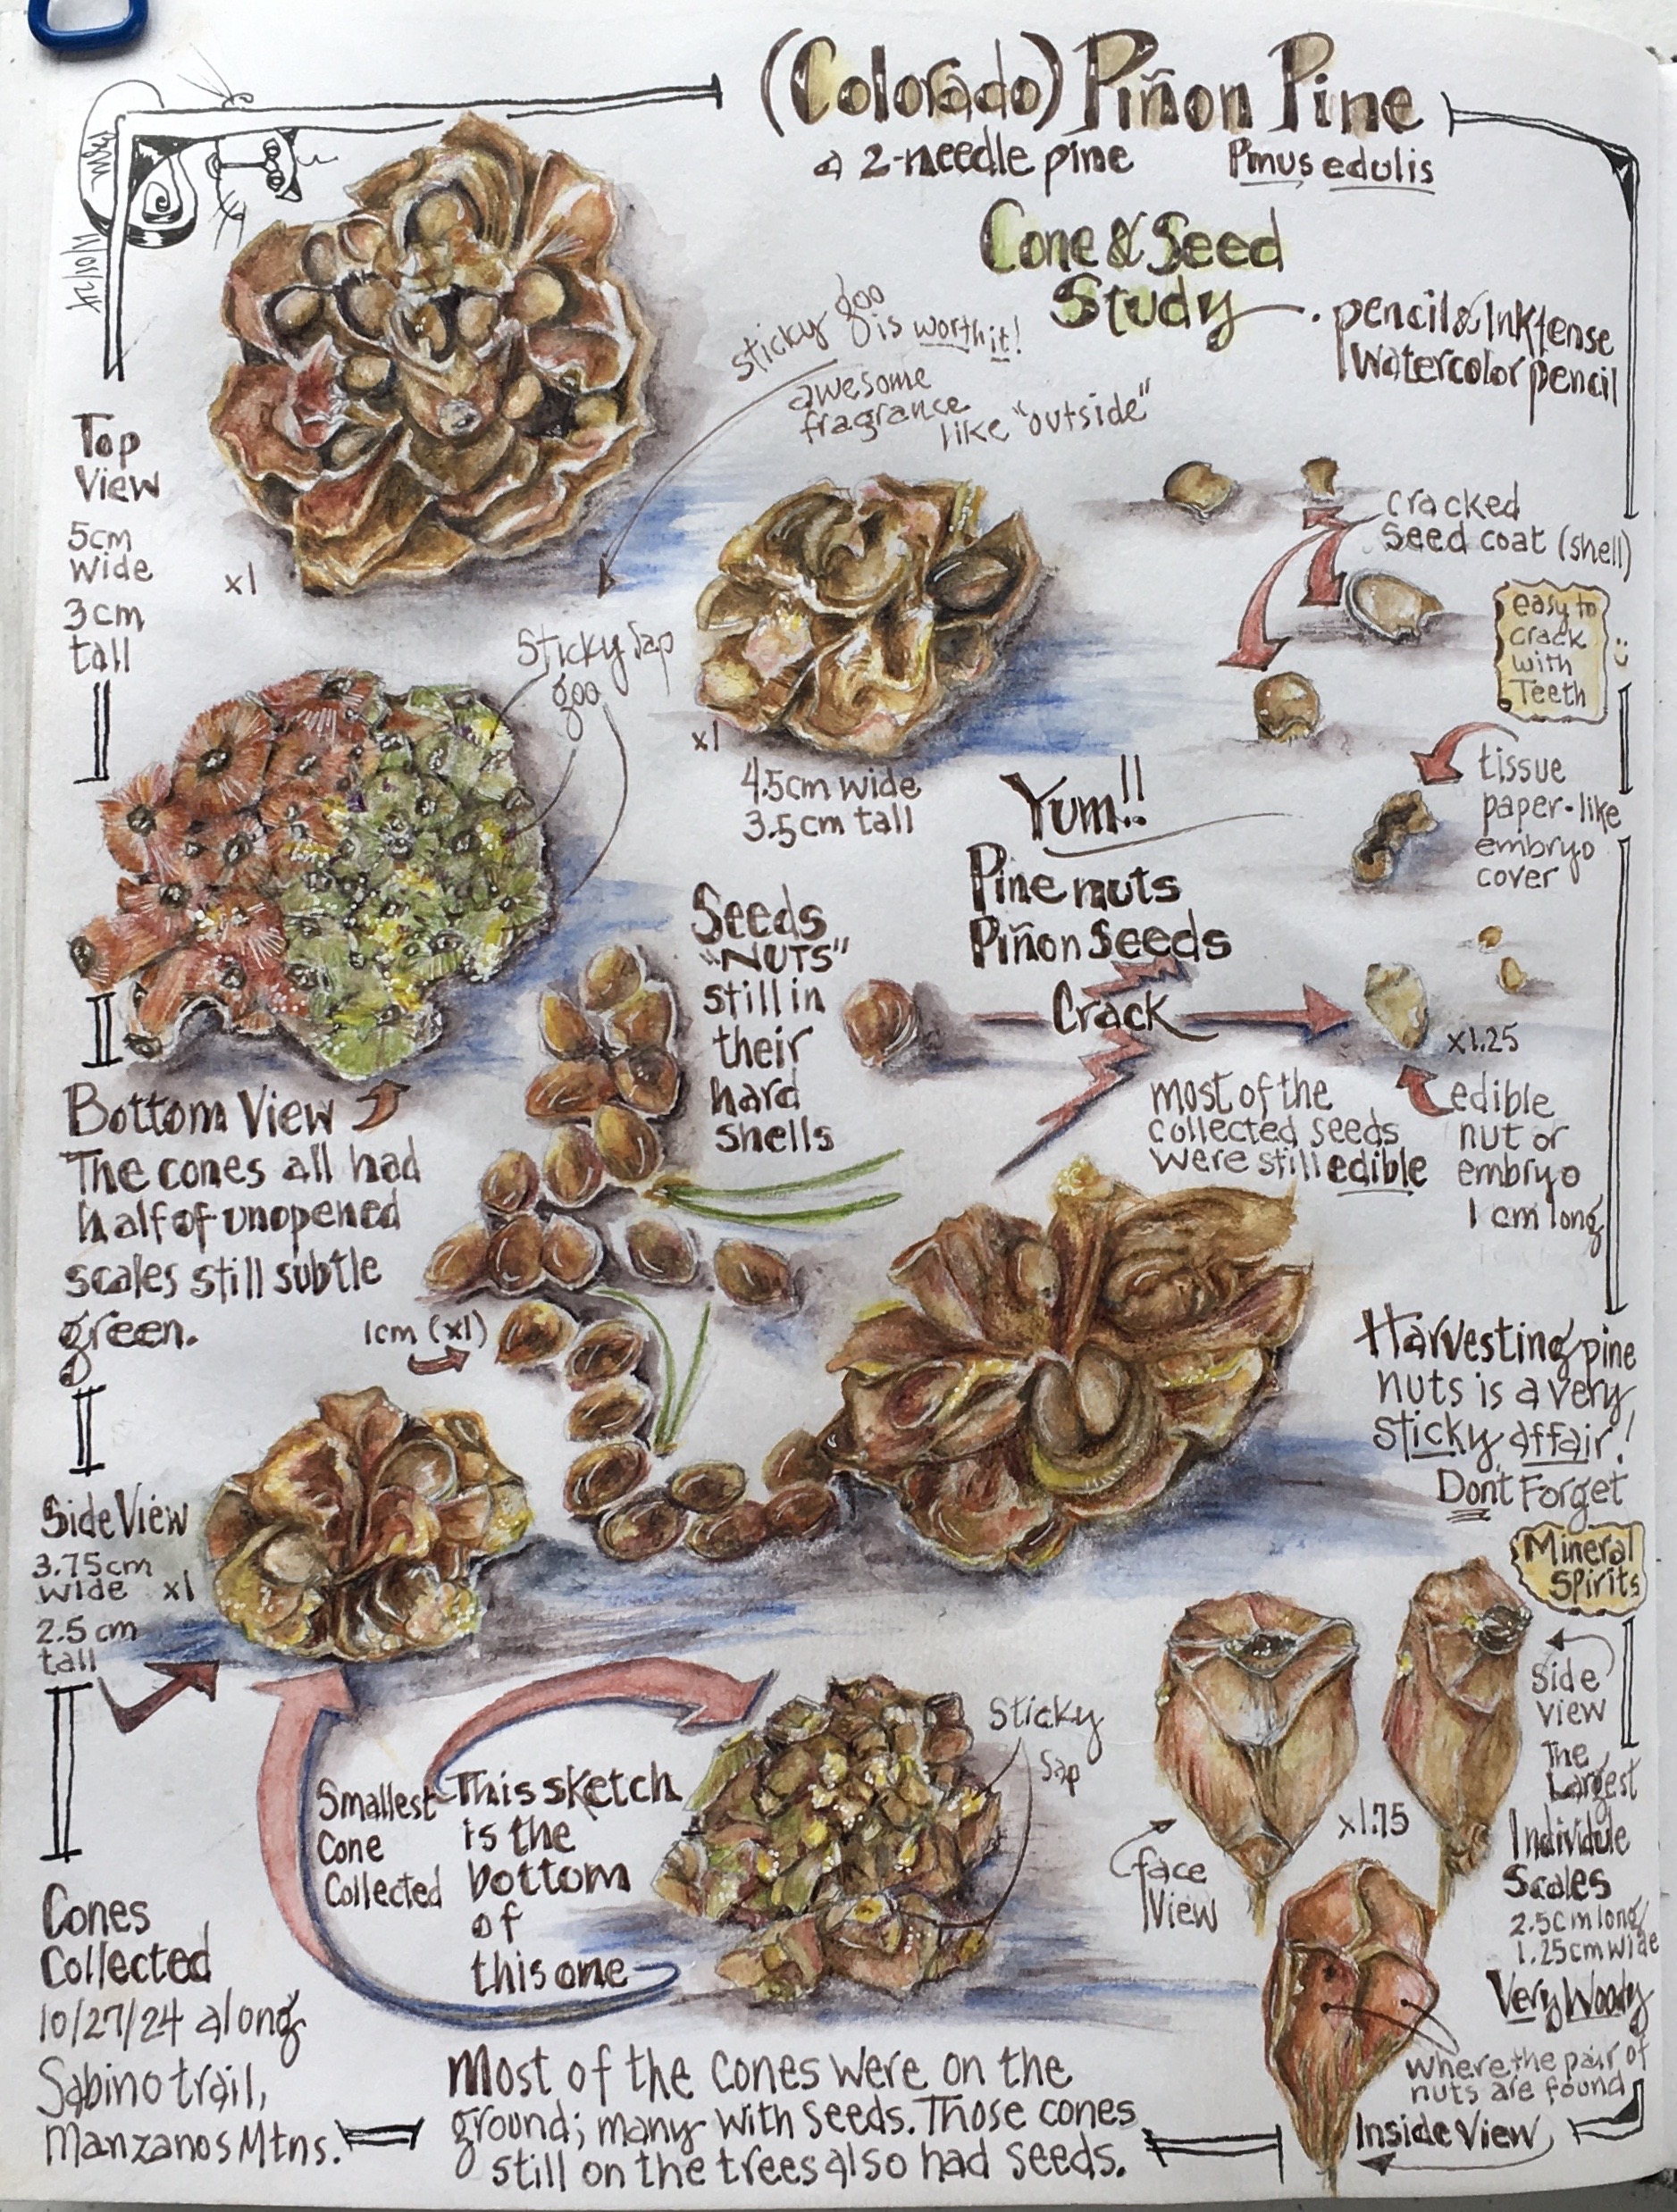 (Colorado) Piñon Pine
a 2-needle pine Pinus edulis
Cone & Seed
Study
. pencil & Inktense
Watercolor pencil
11/01/24
sticky goo
is worth it!
awesome
fragrance
like "outside"
Top
View
5cm
wide
3cm
tall
x1
cracked
seed coat (shell)
easy to
crack
with
Teeth
:)
Sticky Sap
goo
x1
4.5cm wide
3.5cm tall
tissue
paper-like
embryo
cover
Yum!!
Pine nuts
Piñon Seeds
Crack
x1.25
Seeds
"NUTS"
still in
their
hard
shells
most of the
collected seeds
were still edible
edible
nut or
embryo
1 cm long
Bottom View
The cones all had
half of unopened
scales still subtle
green.
1cm (x1)
Harvesting pine
nuts is a very
sticky affair!
Dont Forget
Mineral
Spirits
Side View
3.75cm
wide x1
2.5 cm
tall
Side
view
The
Largest
Individule
Scales
2.5cm long
1.25cm wide
Very Woody
x1.75
face
View
Sticky
Sap
Smallest
Cone
Collected
This sketch
is the
bottom
of
this one
where the pair of
nuts are found
Inside View
Cones
Collected
10/27/24 along
Sabino trail,
Manzanos Mtns.
Most of the cones were on the
ground; many with seeds. Those cones
still on the trees also had seeds.